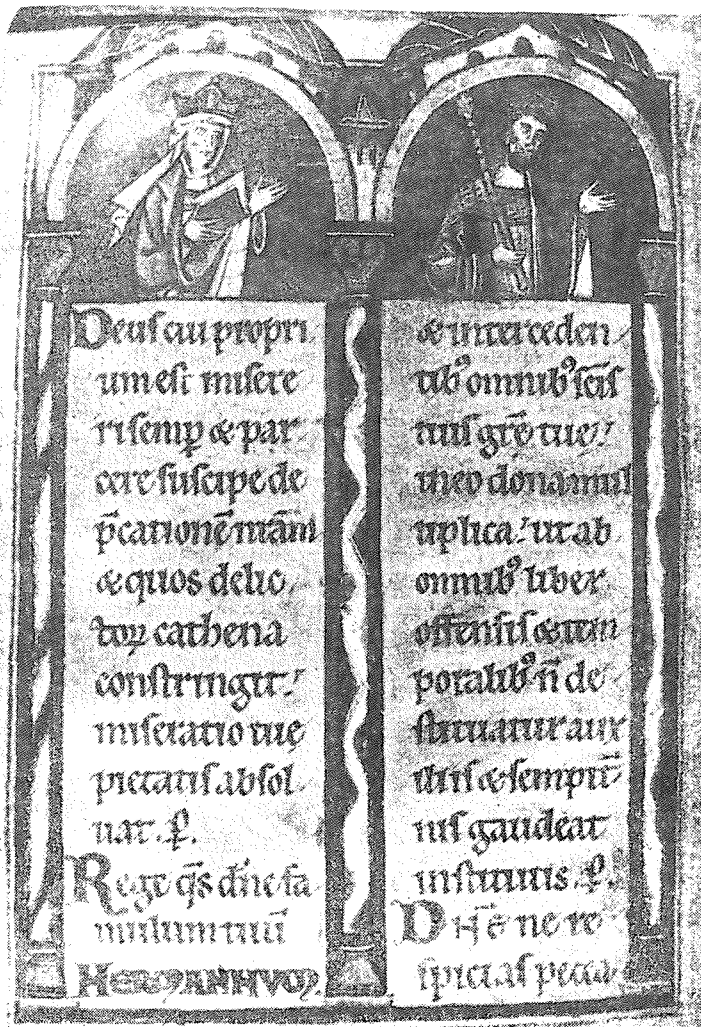 Deus cui propri
um est misere
ri semꝑ & par
cere suscipe de
p̄cationē nr̄am
& quos delic
toꝝ cathena
constringit:
miseratio tuę
pietatis absol
uat. ꝑ.
Rege q̄s dn̄e fa
mulum tuū
HEROꝽANNVOꝽ.
& interceden
tibꝰ omnibꝰ scīs
tuis gr̄ę tuę
in eo dona mul
tiplica: ut ab
omnibꝰ liber
offensis & tem
poralibꝰ n̄ de
stituatur aux
iliis & sempit̄
nis gaudeat
institutis. ꝑ.
ne re
spicias pecca